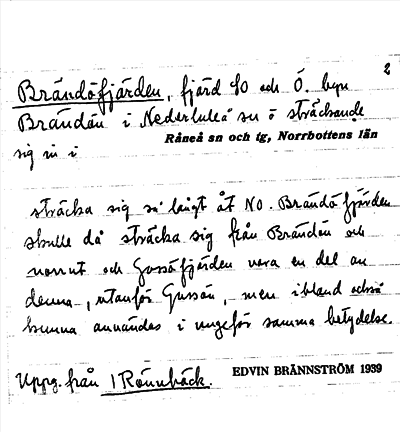 2
Brändöfjärden, fjärd SO och Ö. byn
Brändön i Nederluleå sn o sträckande
Råneå sn och tg, Norrbottens län
sig in i
sträcka sig så långt åt NO. Brändöfjärden
skulle då sträcka sig från Brändön och
norrut och Gussöfjärden vara en del av
denna, utanför Gussön, men ibland också
kunna användas i ungefär samma betydelse.
Uppg. från I Rönnbäck.
EDVIN BRÄNNSTRÖM 1939